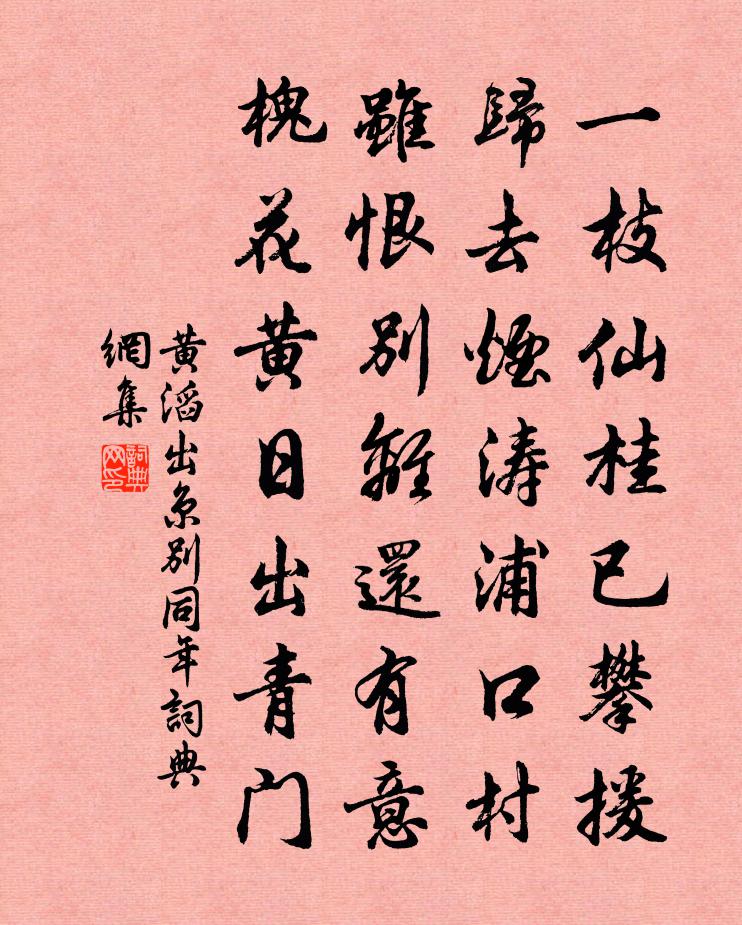 一枝仙桂已攀援
歸去煙濤浦口村
雖恨別離還有意
槐花黃日出青门
黄滔出京別同年詞典
網集
詞典
网印